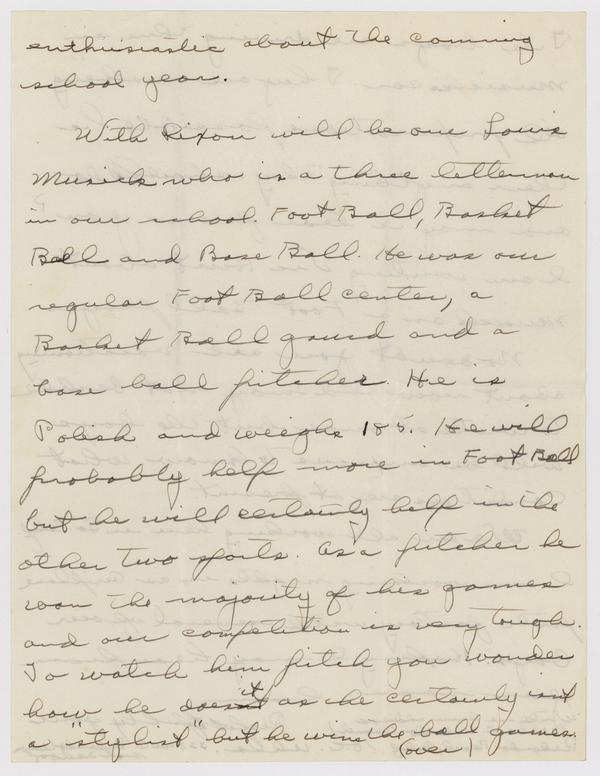 enthusiastic about the coming
school year.
With Rixon will be one Louis
Musick who is a three letterman
in our school. Foot Ball, Basket
Ball and Base Ball. He was our
regular Foot Ball center, a
Basket Ball guard and a
base ball pitcher. He is
Polish and weighs 185. He will
probably help more in Foot Ball
but he will certainly help in the
other two sports. As a pitcher he
won the majority of his games
and our competition is very tough.
To watch him pitch you wonder
how he does it as he certainly isnt
a "stylist" but he wins the ball games.
(over)